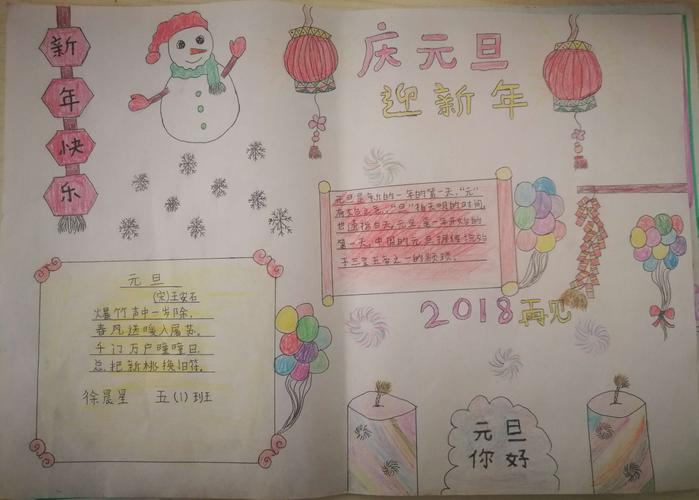 新
年
快
乐
庆元旦
迎新年
元旦是新的一年的第一天,"元"
"旦"指天明的时间
第一天,中国的元旦
于三皇五帝之一的颛顼。
元旦
(宋)王安石
爆竹声中一岁除,
春风送暖入屠苏。
千门万户曈曈日,
总把新桃换旧符。
徐晨星 五(1)班
2018再见
元旦
你好